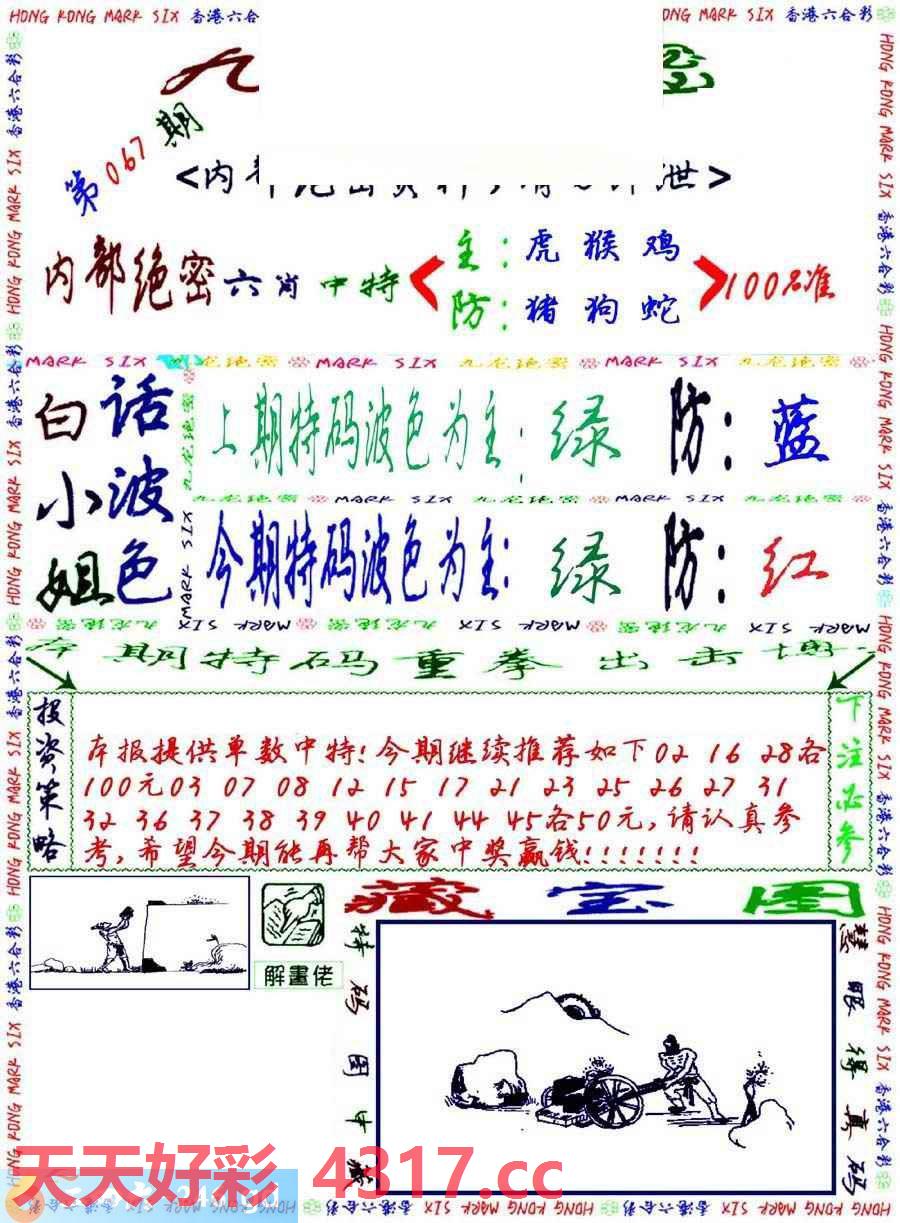 HONG KONG MARK SIX 香港六合彩
第067期
内部绝密六肖中特
主：虎猴鸡
防：猪狗蛇
100%准
MARK SIX 九龙绝密 MARK SIX 九龙绝密 MARK SIX 九龙绝密
白话
小波
姐色
上期特码波色为主：绿 防：蓝
九龙绝密 MARK SIX 九龙绝密 MARK SIX 九龙绝密
今期特码波色为主：绿 防：红
期特码重拳出击
投资策略
本报提供单数中特！今期继续推荐如下02 16 28各
100元03 07 08 12 15 17 21 23 25 26 27 31
32 36 37 38 39 40 41 44 45各50元，请认真参
考，希望今期能再帮大家中奖赢钱！！！！！！！
下注必参
藏宝图
解畫佬
特码图中藏
慧眼得真码
天天好彩 4317.cc